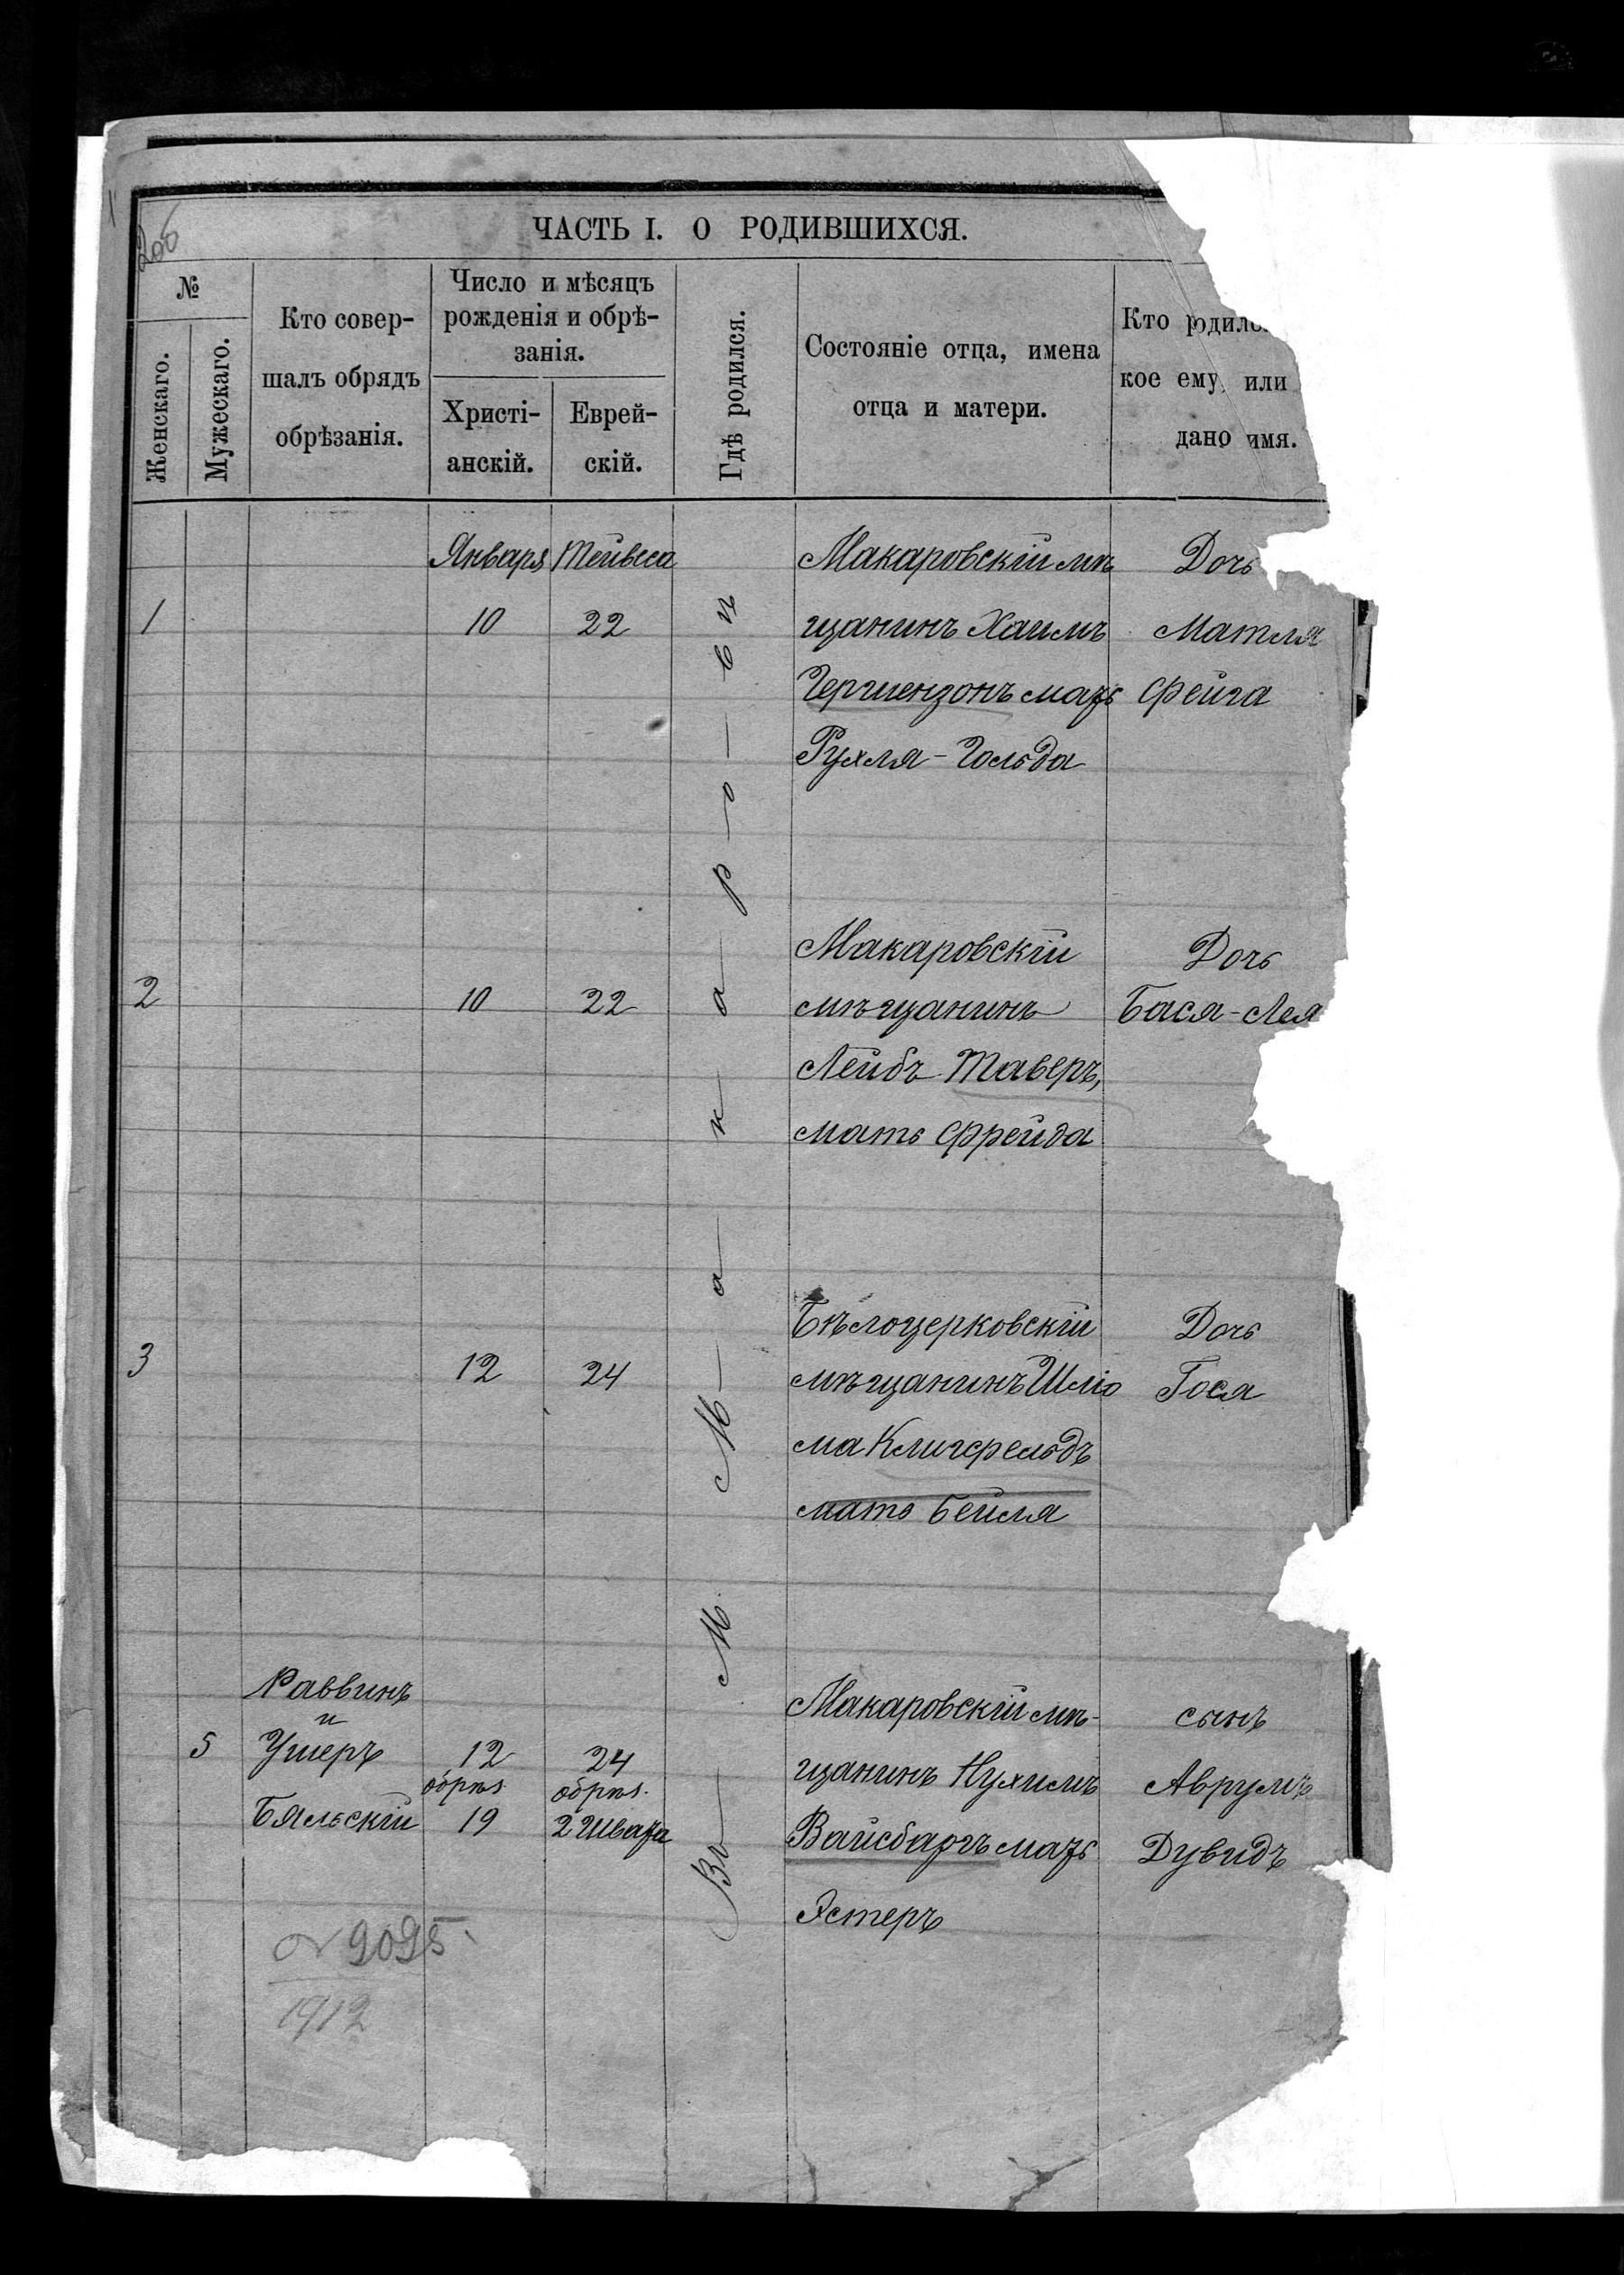 206
ЧАСТЬ I. О РОДИВШИХСЯ.
№
Женскаго.
Мужескаго.
Кто совер-
шалъ обрядъ
обрѣзанія.
Число и мѣсяцъ
рожденія и обрѣ-
занія.
Христі-
анскій.
Еврей-
скій.
Гдѣ родился.
Состояніе отца, имена
отца и матери.
Кто родилс
кое ему, или
дано имя.
Января Тейвеса
Макаровскій мѣ Дочь
1 10 22 щанинъ Хаимъ Матля
Гершензонъ мать Фейга
Рухля-Гольда
Макаровскій Дочь
2 10 22 мѣщанинъ Бася-Лея
Лейбъ Таверъ,
мать Фрейда
Бѣлоцерковскій Дочь
3 12 24 мѣщанинъ Шліо Гося
ма Клигфельдъ
мать Бейля
Въ М. Макаровѣ
Раввинъ
и
Макаровскій мѣ- сынъ
5 Ушеръ 12 24
обрѣз. обрѣз.
щанинъ Нухимъ Аврумъ
Бяльскій 19 2 Швата Вайсбаргъ мать Дувидъ
Эстеръ
№ 9095
1912